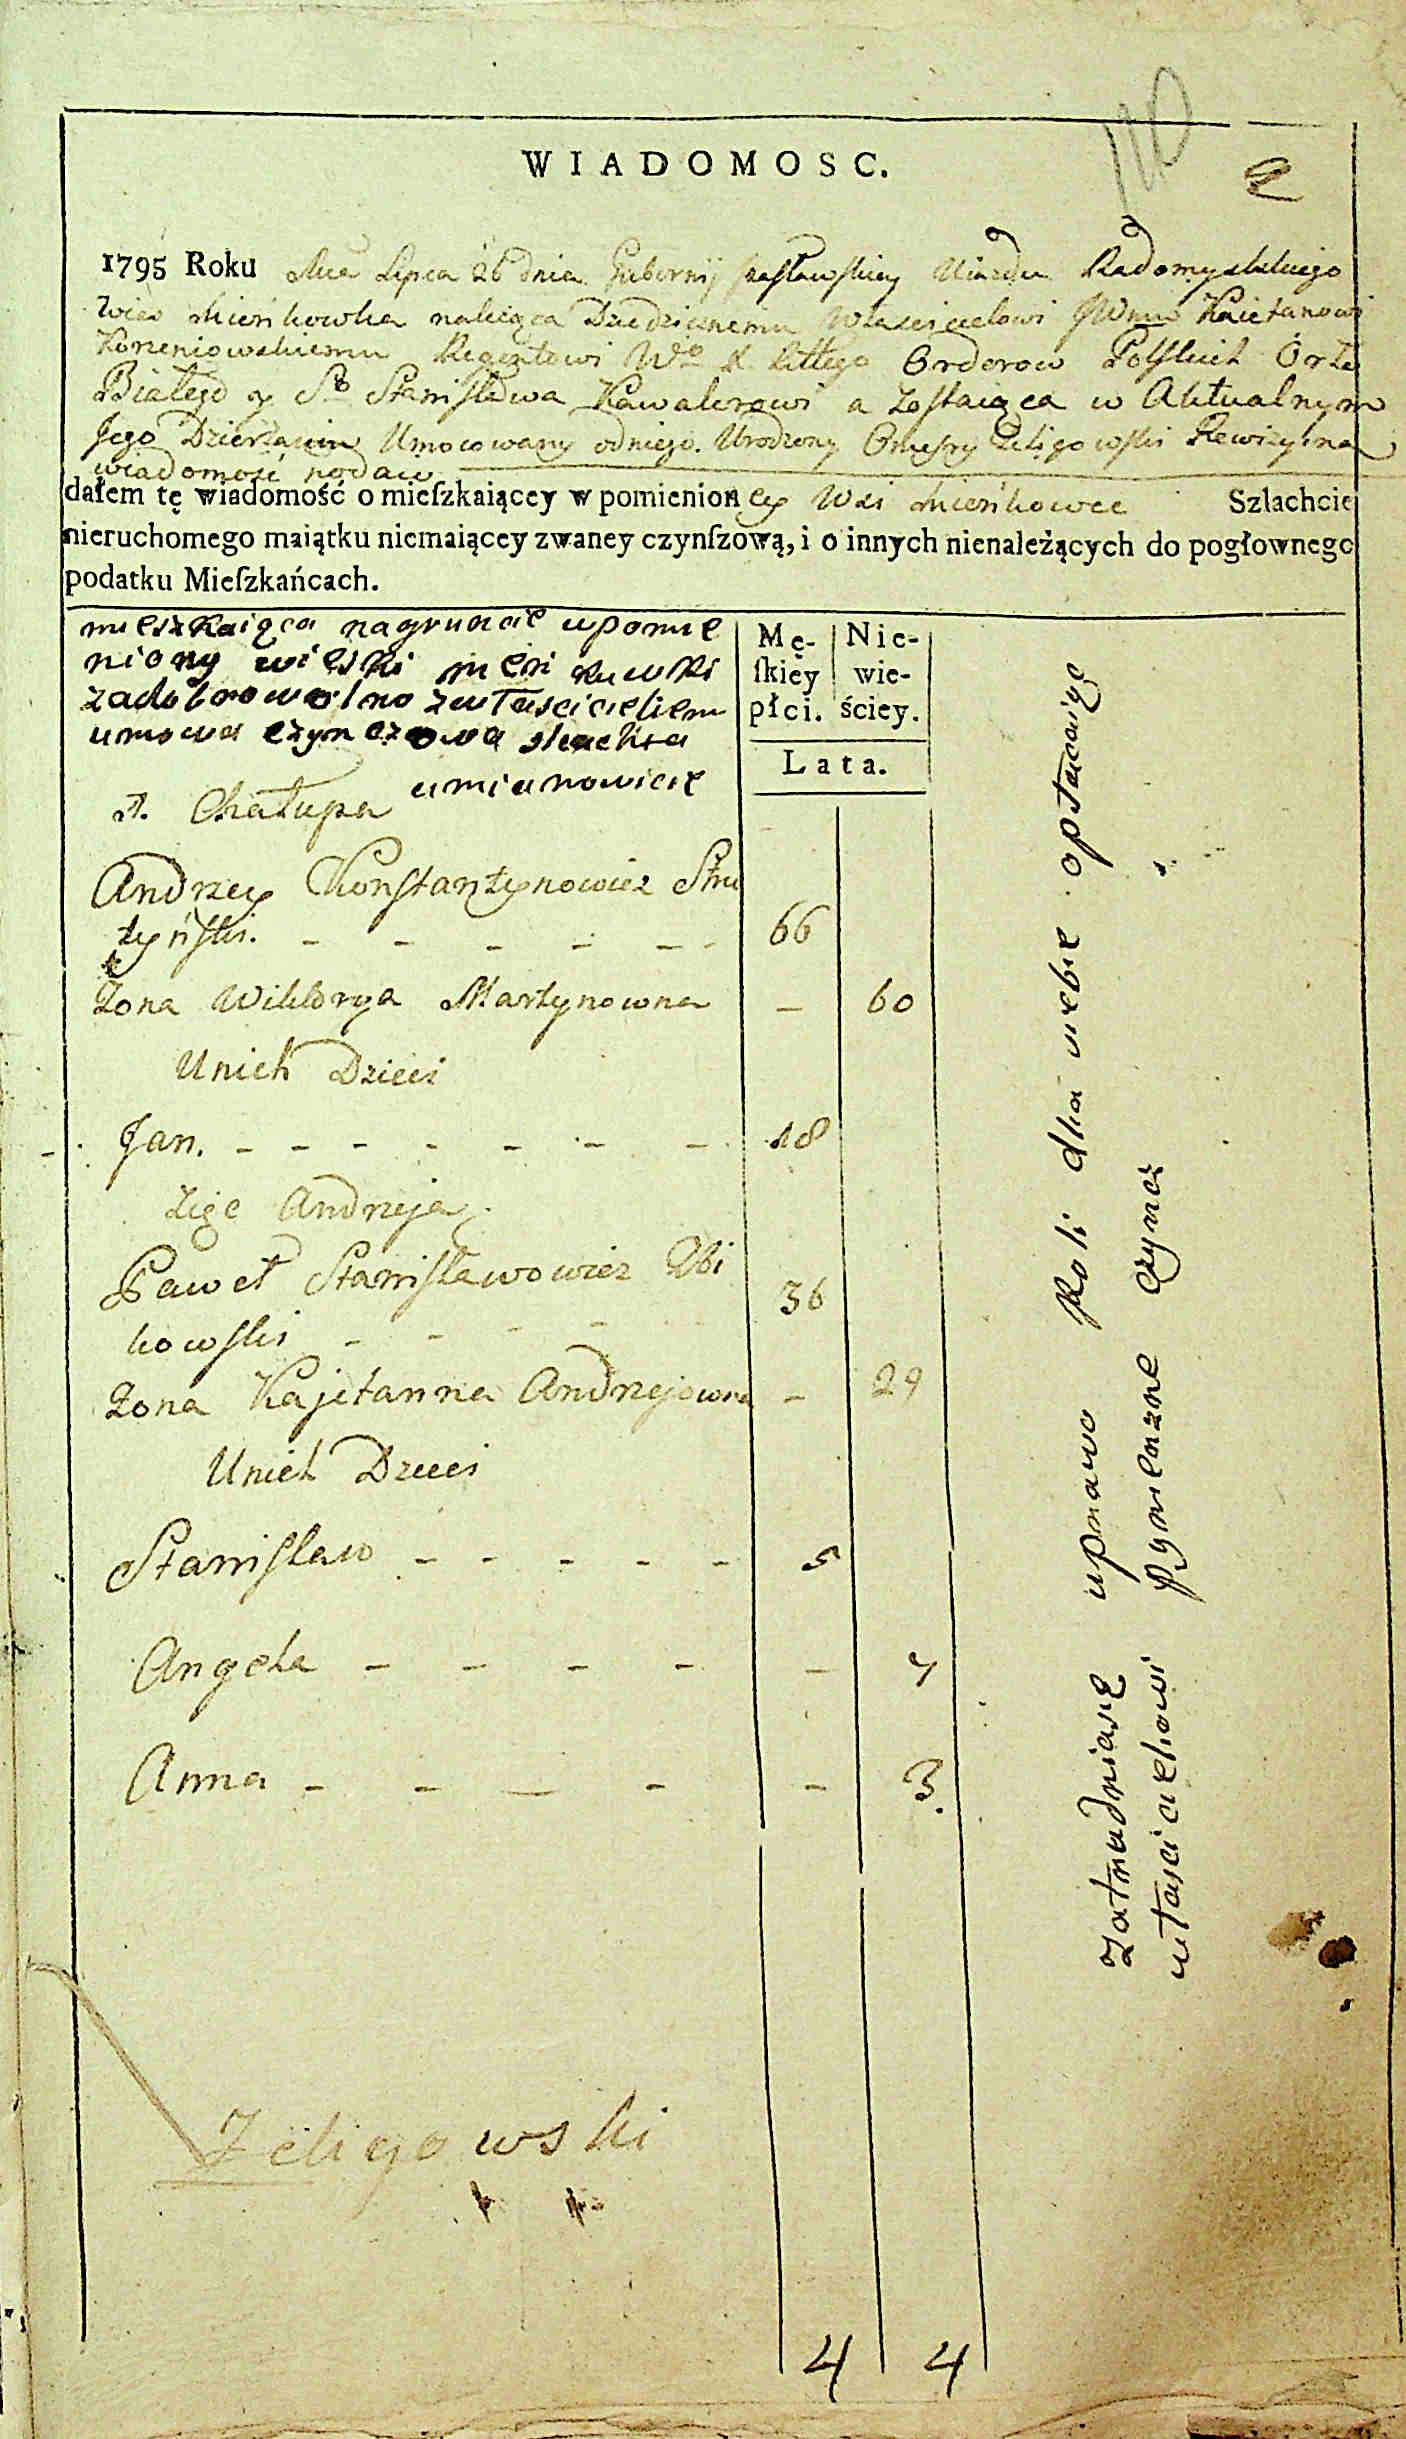 WIADOMOSC.
2
1795 Roku Mca Lipca 26 dnia Gubernij Izasławskiey Uiazdu Radomyslskiego
Wieś Mieńkowka należąca Dziedzicznemu Właścicielowi JWmu Kaietanowi
Korzeniowskiemu Regentowi Orderow Polskich Orła
Białego y So Stanisława Kawalerowi a Zostaiąca w Aktualnym
Jego Dzierżaniu Umocowany odniego Urodzony Onufry Zeligowski Rewizyina
wiadomość podaie
dałem tę wiadomość o mieſzkaiącey w pomienioney Wsi Mieńkowce Szlachcie
nieruchomego maiątku niemaiącey zwaney czynſzową, i o innych nienależących do pogłownego
podatku Mieſzkańcach.
mieszkaiąca nagruncie wpomie
niony wieski
zadobrowolno zwłascicieliem
umowa czynszowa slachta
amianowicie
Mę-
ſkiey
płci.
Nie-
wie-
ściey.
Lata.
1. Chałupa
Andrzey Konstantynowicz Stru
tyński. 66
Zona Wiktorya Martynowna — 60
Unich Dzieci
Jan. 18
Zięc Andrzeja
Paweł Stanisławowicz
kowski 36
Zona Kajetanna Andrzejowna – 29
Unich Dzieci
Stanisław 5
Angela – 7
Anna – 3.
Zatrudniasię uprawo Roli dla siebie opłacaiąc
własicielowi pynienzne czynsz
Zeligowski
4 4